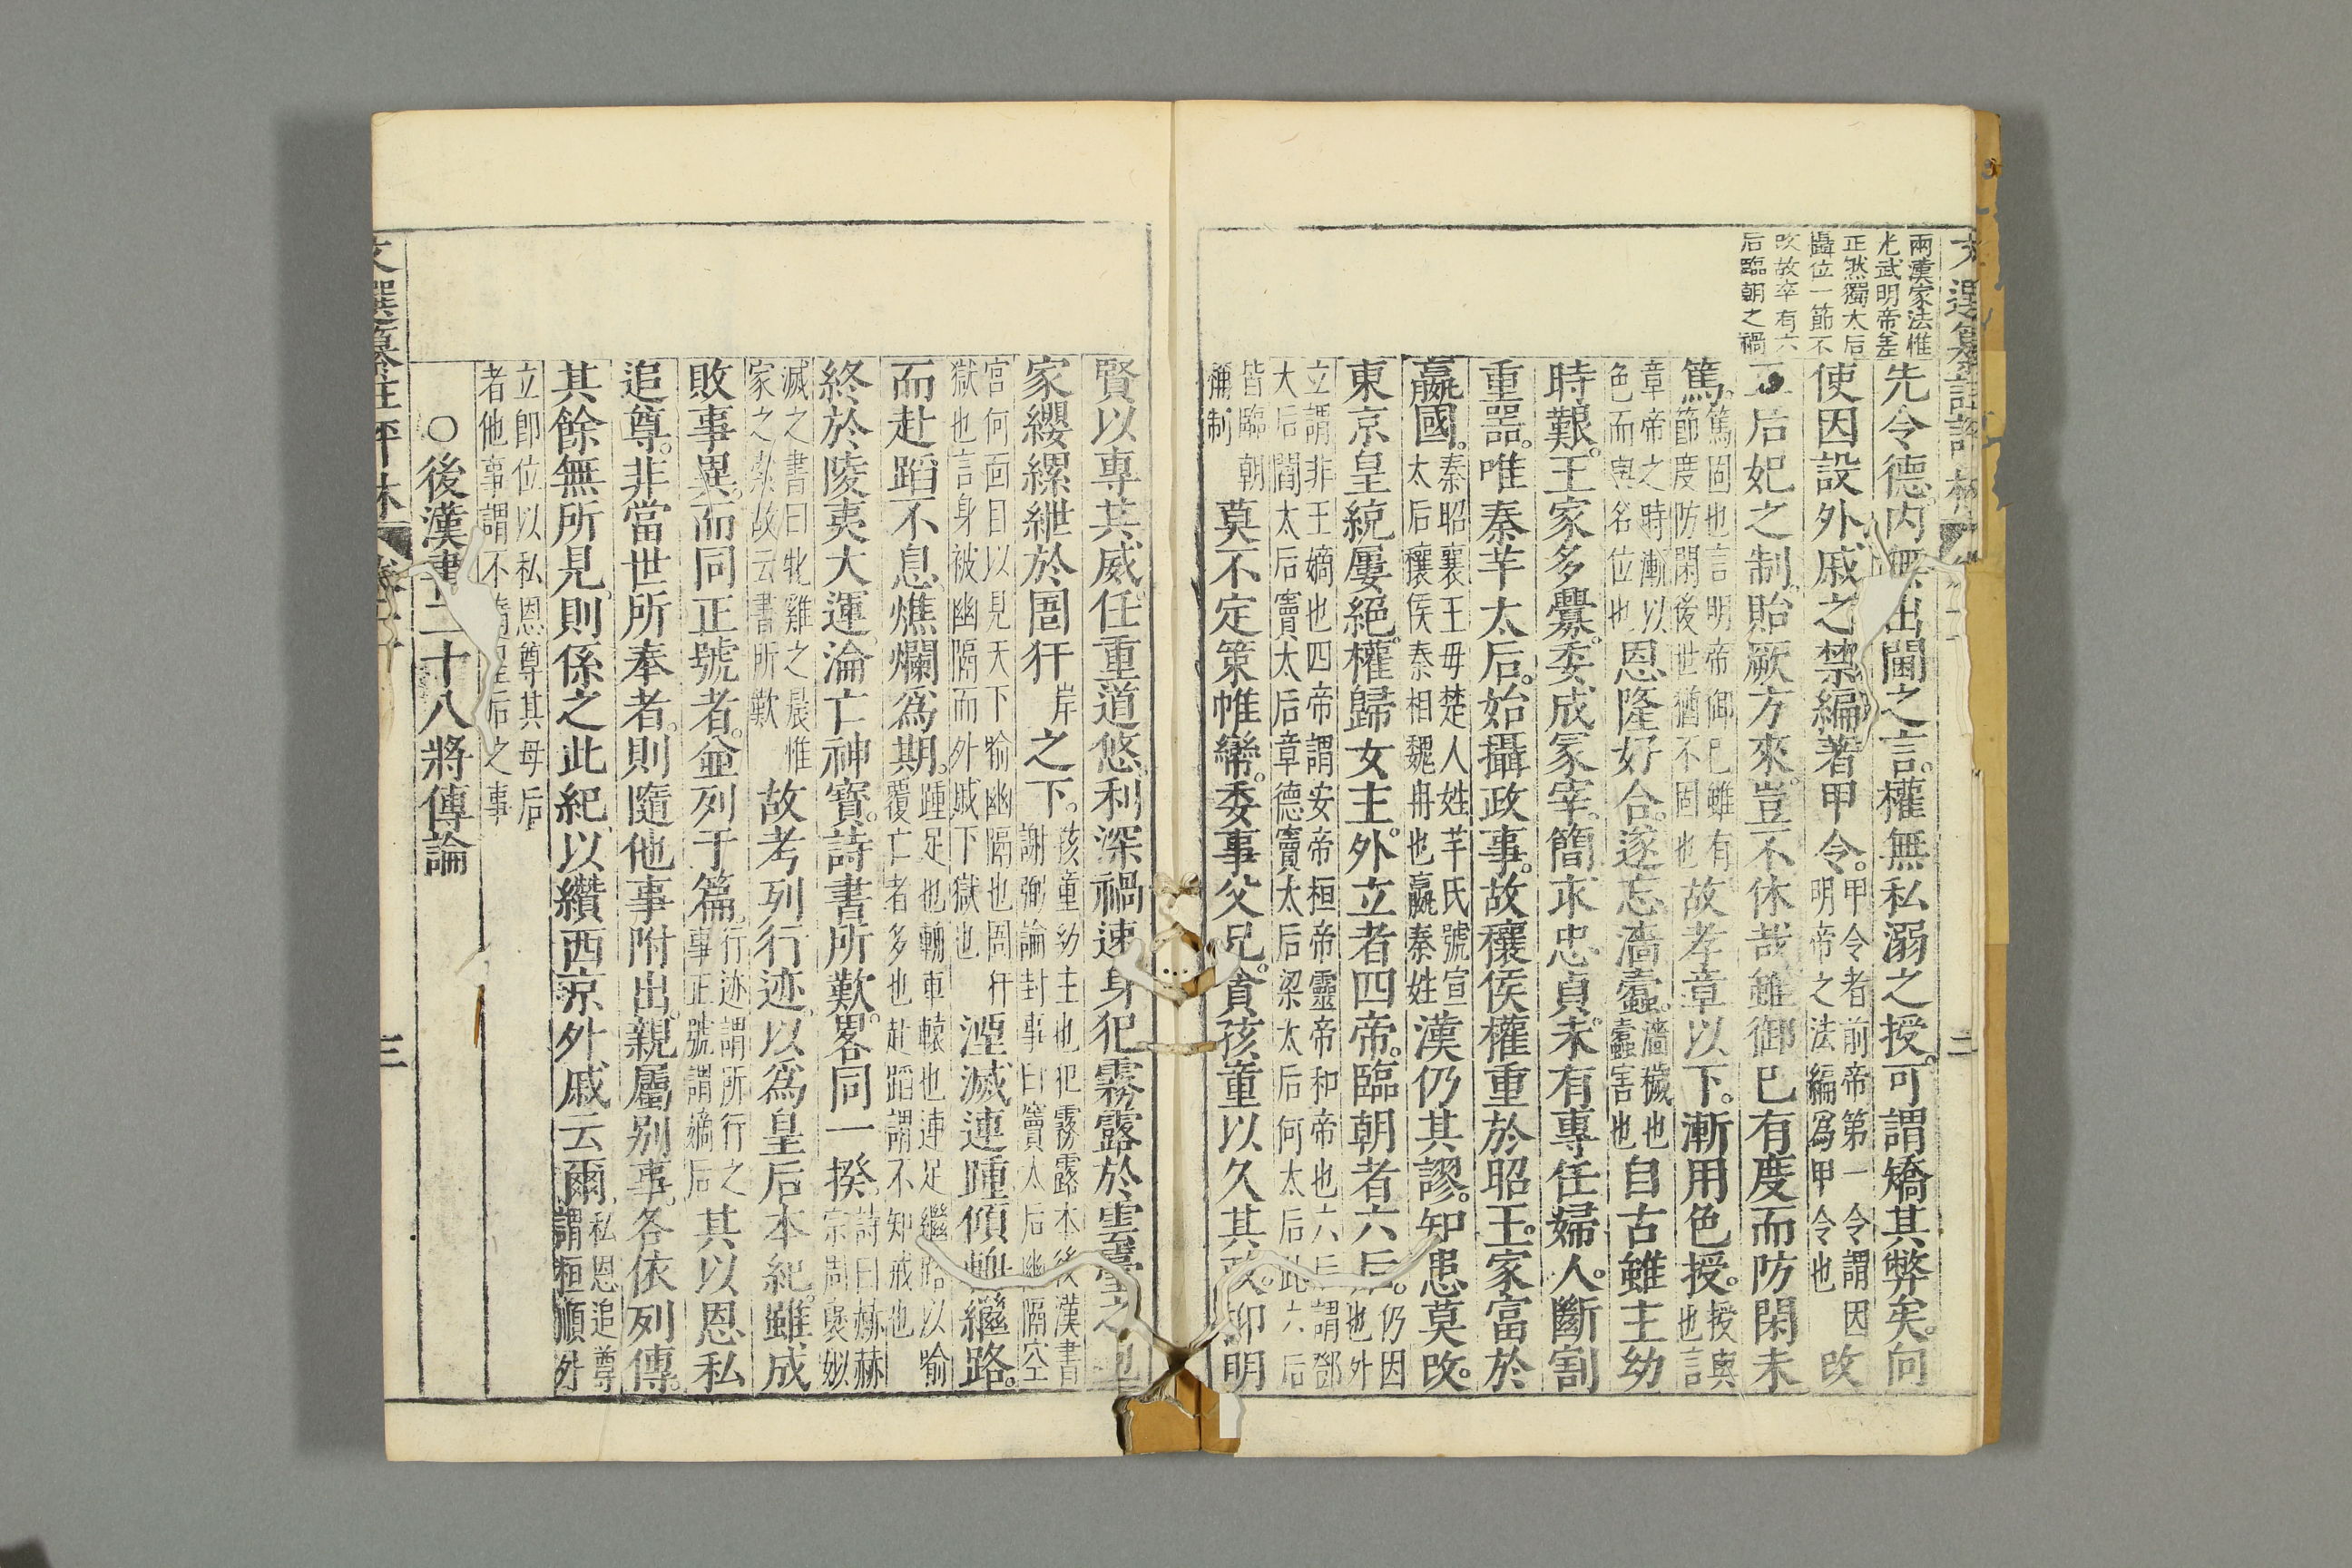 兩漢家法惟
光武明帝差
正然獨太后
攝位一節不
改故卒有六
后臨朝之禍
先令德內無出閫之言。權無私溺之授。可謂矯其弊矣。向
使因設外戚之禁編著甲令。甲令者前帝第一令謂因明帝之法編爲甲令也改
正后妃之制貽厥方來。豈不休哉雖御已有度而防閑未
篤。篤固也言明帝御已雖有節度防閑後世猶不固也故孝章以下。漸用色授。授與也言
章帝之時漸以色而與名位也恩隆好合。遂忘淄蠹。淄穢也蠹害也自古雖主幼
時艱。王家多釁。委成冢宰。簡求忠貞。未有專任婦人。斷割
重器。唯秦芈太后。始攝政事。故穰侯權重於昭王。家富於
嬴國。秦昭襄王母楚人姓芈氏號宣太后穰侯秦相魏冉也嬴秦姓漢仍其謬。知患莫改。
東京皇統屢絕。權歸女主。外立者四帝。臨朝者六后。仍因也外
立謂非王嫡也四帝謂安帝桓帝靈帝和帝也六后謂鄧大后閻太后竇太后章德竇太后梁太后何太后此六后
皆臨朝稱制莫不定策帷帟。委事父兄。貪孩童以久其政。抑明
賢以專其威。任重道悠。利深禍速身犯霧露於雲臺之上
家纓縲紲於圄犴岸之下。孩童幼主也犯霧露本後漢書謝弼論封事曰竇太后幽隔空
宮何面目以見天下喻幽隔也圄犴獄也言身被幽隔而外戚下獄也湮滅連踵傾輈繼路。
而赴蹈不息。燋爛爲期。踵足也輈車轅也連足繼路以喻覆亡者多也赴蹈謂不知戒也
終於陵夷大運。淪亡神寶。詩書所歎。畧同一揆。詩曰赫赫宗周襃姒
滅之書曰牝雞之晨惟家之索故云書所歎故考列行迹。以爲皇后本紀。雖成
敗事異。而同正號者。並列于篇。行迹謂所行之事正號謂嫡后其以恩私
追尊。非當世所奉者。則隨他事附出。親屬別事。各依列傳。
其餘無所見。則係之此紀以纘西京外戚云爾。私恩追尊謂桓順外
立卽位以私恩尊其母后者他事謂不爲皇后之事
○後漢書二十八將傳論
三